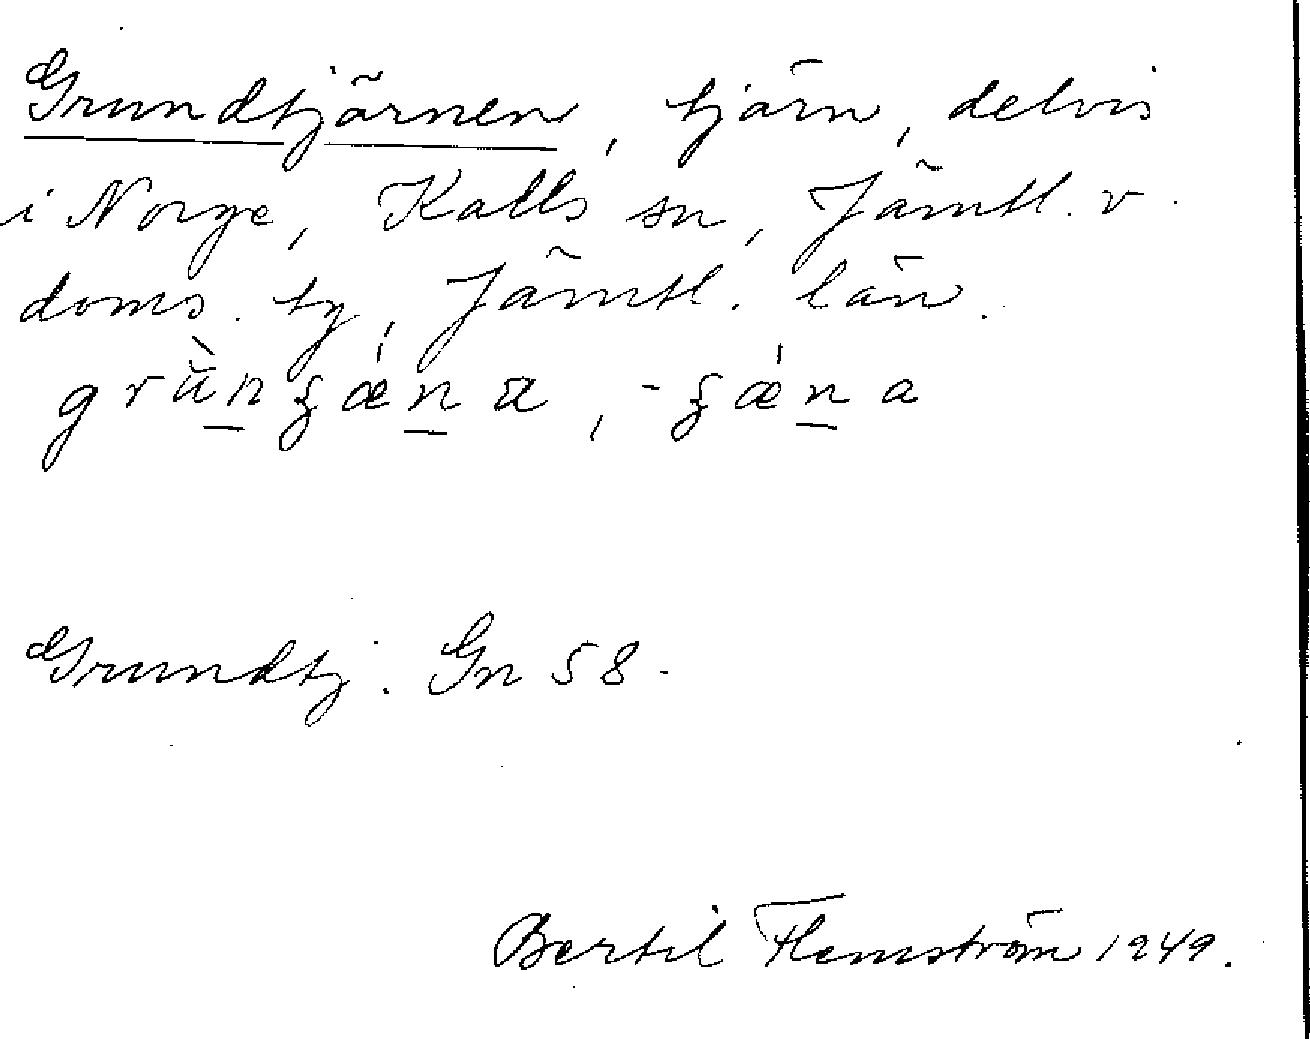 Grundtjärnen, tjärn, delvis
i Norge, Kalls sn, Jämtl. v.
doms. ty, Jämtl. län.
Grundtj. Gn 58.
Bertil Flemström 1949.